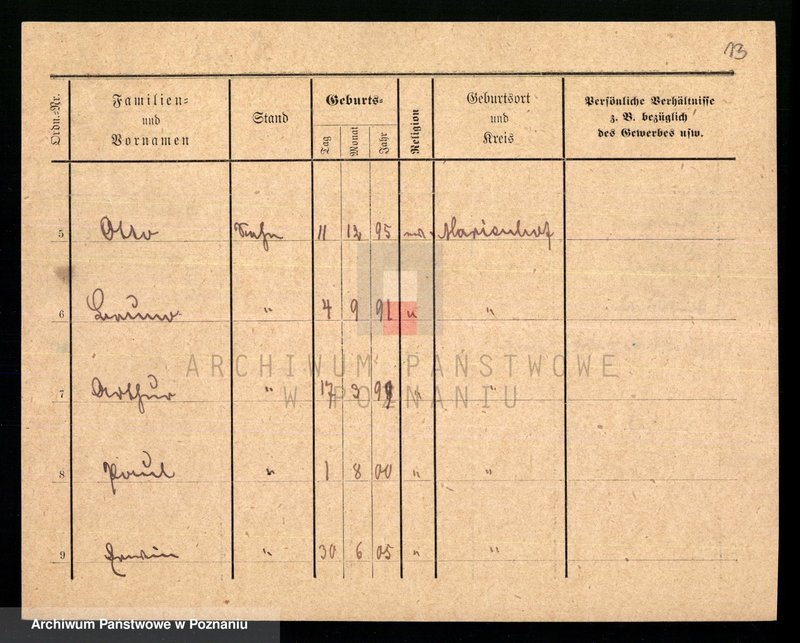 13
Ordn.-Nr.
Familien-
und
Vornamen
Stand
Geburts-
Tag
Monat
Jahr
Religion
Geburtsort
und
Kreis
Persönliche Verhältnisse
z. B. bezüglich
des Gewerbes usw.
5 Otto Sohn 11 12 95 Marienhof
6 Bruno " 4 9 "
7 Arthur " 17 3 " "
8 Paul " 1 8 00 " "
9 Erwin " 30 6 05 " "
ARCHIWUM PAŃSTWOWE
W POZNANIU
Archiwum Państwowe w Poznaniu